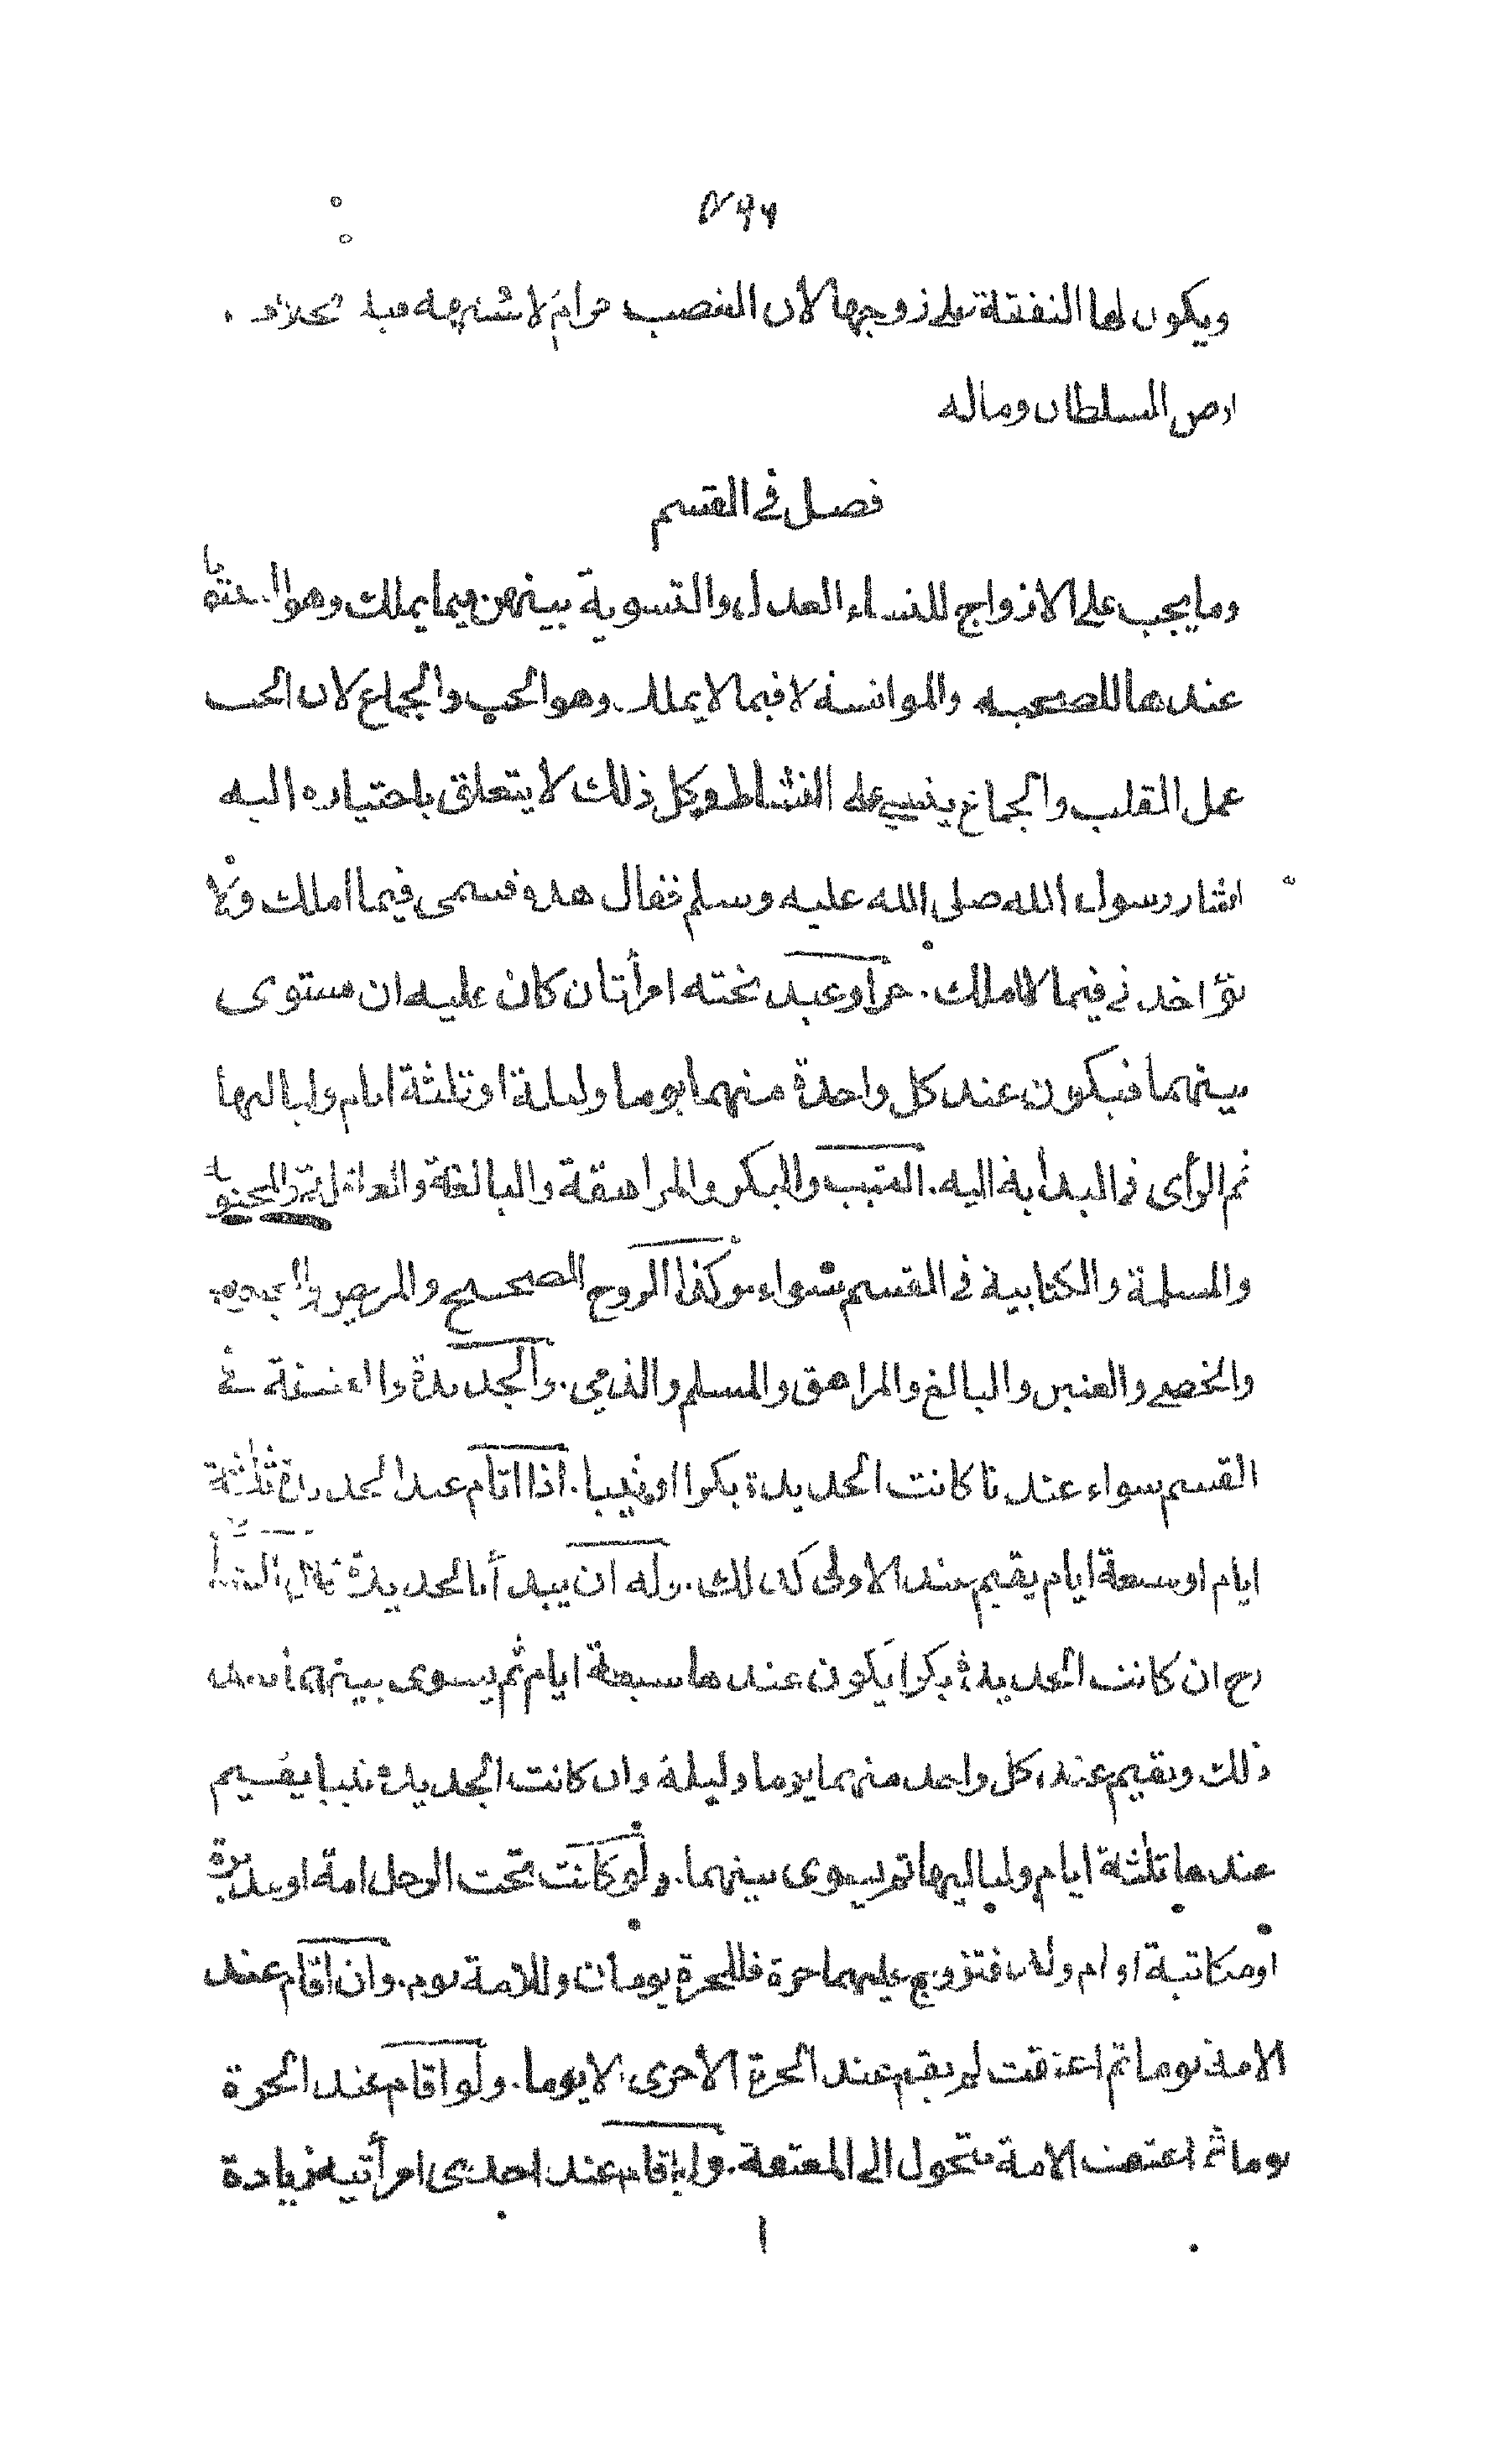 ويكون لها النفقة على زوجها لان الغصب حرام لا شبهة فيه بخلاف
ارض السلطان وماله
فصل في القسم
وما يجب على الازواج للنساء العدل والتسوية بينهن فيما يملك وهو البيتوتة
عندها للصحبه والموانسة لا فيما لا يملك وهو الحب والجماع لان الحب
عمل القلب والجماع يبتني على النشاط وكل ذلك لا يتعلق باختياره اليه
اشار رسول الله صلى الله عليه وسلم فقال هذه قسمى فيما املك ولا
تؤاخذني فيما لا املك. حر او عبد تحته امرأتان كان عليه ان يستوى
بينهما فيكون عند كل واحدة منهما يوما وليلة او ثلثة ايام ولياليها
ثم الرأى في البدأية اليه. الثيب والبكر والمراهقة والبالغة والعاقلة والمجنونة
والمسلمة والكتابية في القسم سواء وكذا الزوج الصحيح والمريض والمجبوب
والخصي والعنين والبالغ والمراهق والمسلم والذمي. والجديدة والعتيقة في
القسم سواء عندنا كانت الجديدة بكرا او ثيبا. اذا اقام عند الجديدة ثلثة
ايام او سبعة ايام يقيم عند الاولى كذلك. وله ان يبدأ بالجديدة
ان كانت الجديدة بكرا يكون عندها سبعة ايام ثم يسوى بينهما بعد
ذلك ويقيم عند كل واحد منهما يوما وليلة وان كانت الجديدة ثيبا يقيم
عندها ثلثة ايام ولياليها ثم يسوى بينهما. ولو كانت تحت الرجل امة او مدبرة
او مكاتبة او ام ولد فتزوج عليهما حرة فللحرة يومان وللامة يوم. وان اقام عند
الامة يوما ثم اعتقت لم يقم عند الحرة الاخرى الا يوما. ولو اقام عند الحرة
يوما ثم اعتقت الامة يتحول الى المعتقة. ولو اقام عند احدى امرأتيه زيادة